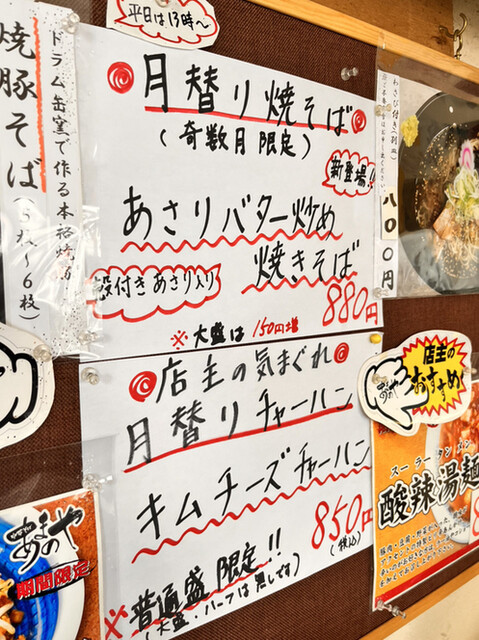 平日は13時〜
月替り焼そば
(奇数月限定)
新登場!!
あさりバター炒め
焼きそば
殻付きあさり入り
880円
※大盛は150円増
店主の気まぐれ
月替りチャーハン
キムチーズチャーハン
850円
(税込)
※普通盛限定!!
(大盛・ハーフは無しです)
ドラム缶窯で作る本格焼豚
焼豚そば(5丸〜6枚)
わさび付き(別皿)
八〇〇円
店主の
おすすめ
スーラータンメン
酸辣湯麺
あまのや
期間限定